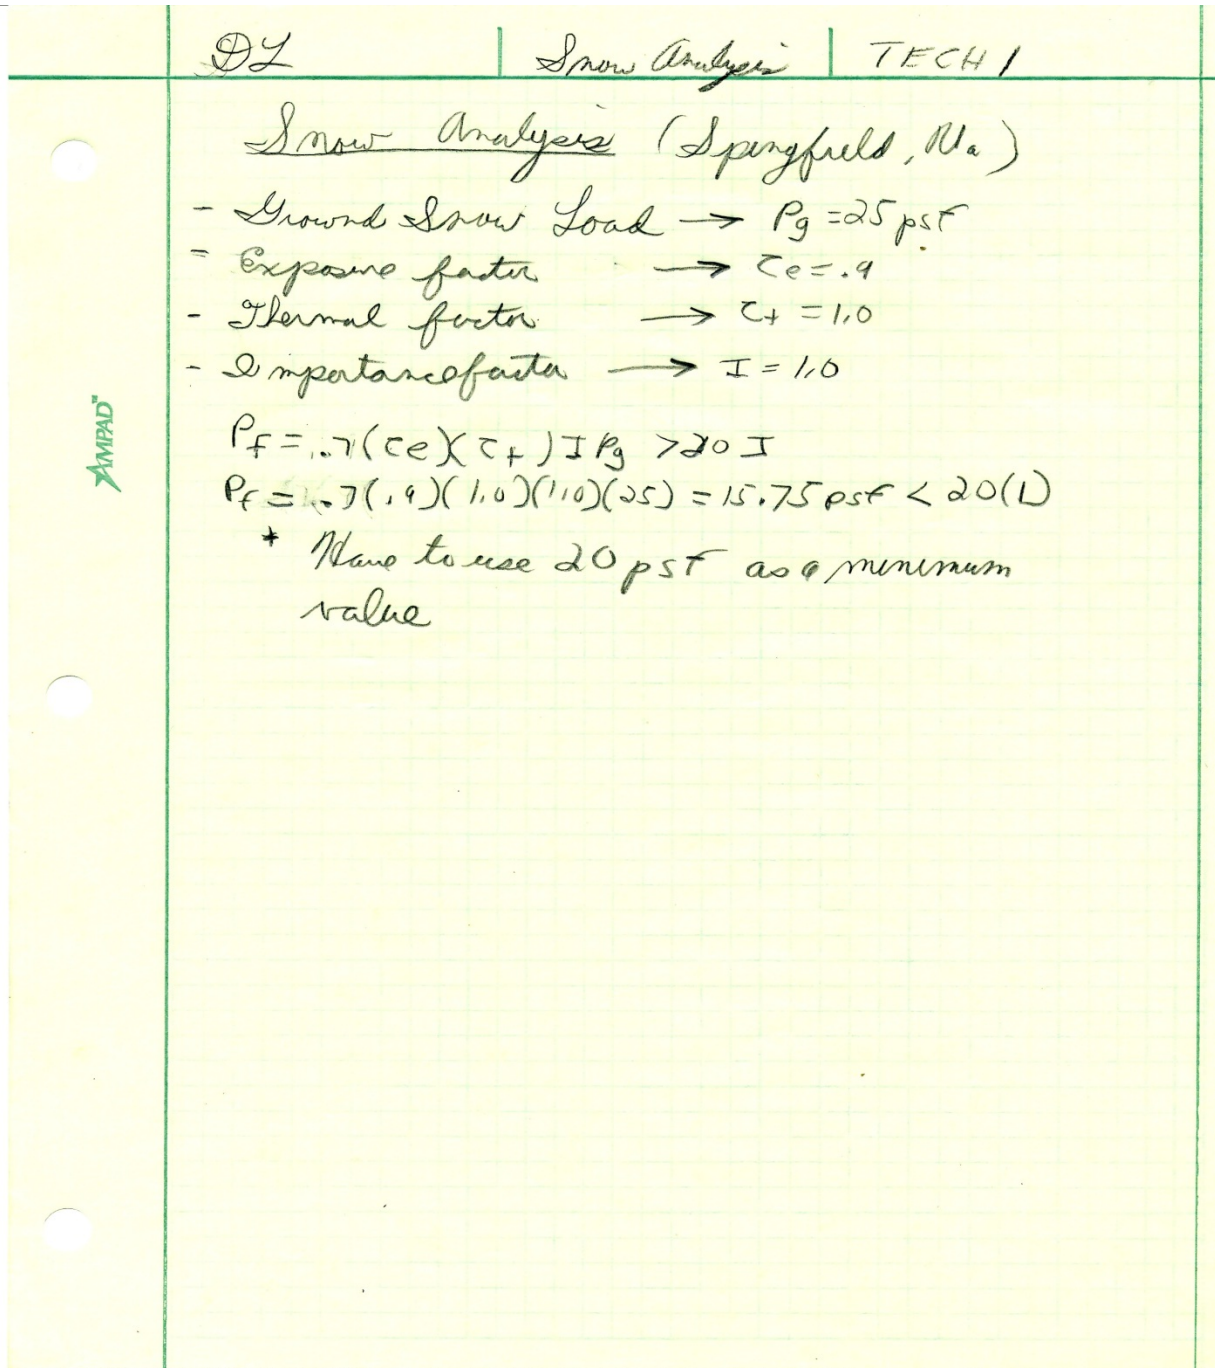 DL Snow Analysis TECH 1
Snow Analysis (Spingfield, Ma)
- Ground Snow Load → Pg = 25 psf
- Exposure factor → Ce = .9
- Thermal factor → Ct = 1.0
- Importance factor → I = 1.0
Pf = .7(Ce)(Ct) I Pg > 20 I
Pf = .7(.9)(1.0)(1.0)(25) = 15.75 psf < 20(1)
* Have to use 20 psf as a minimum
value
AMPAD™